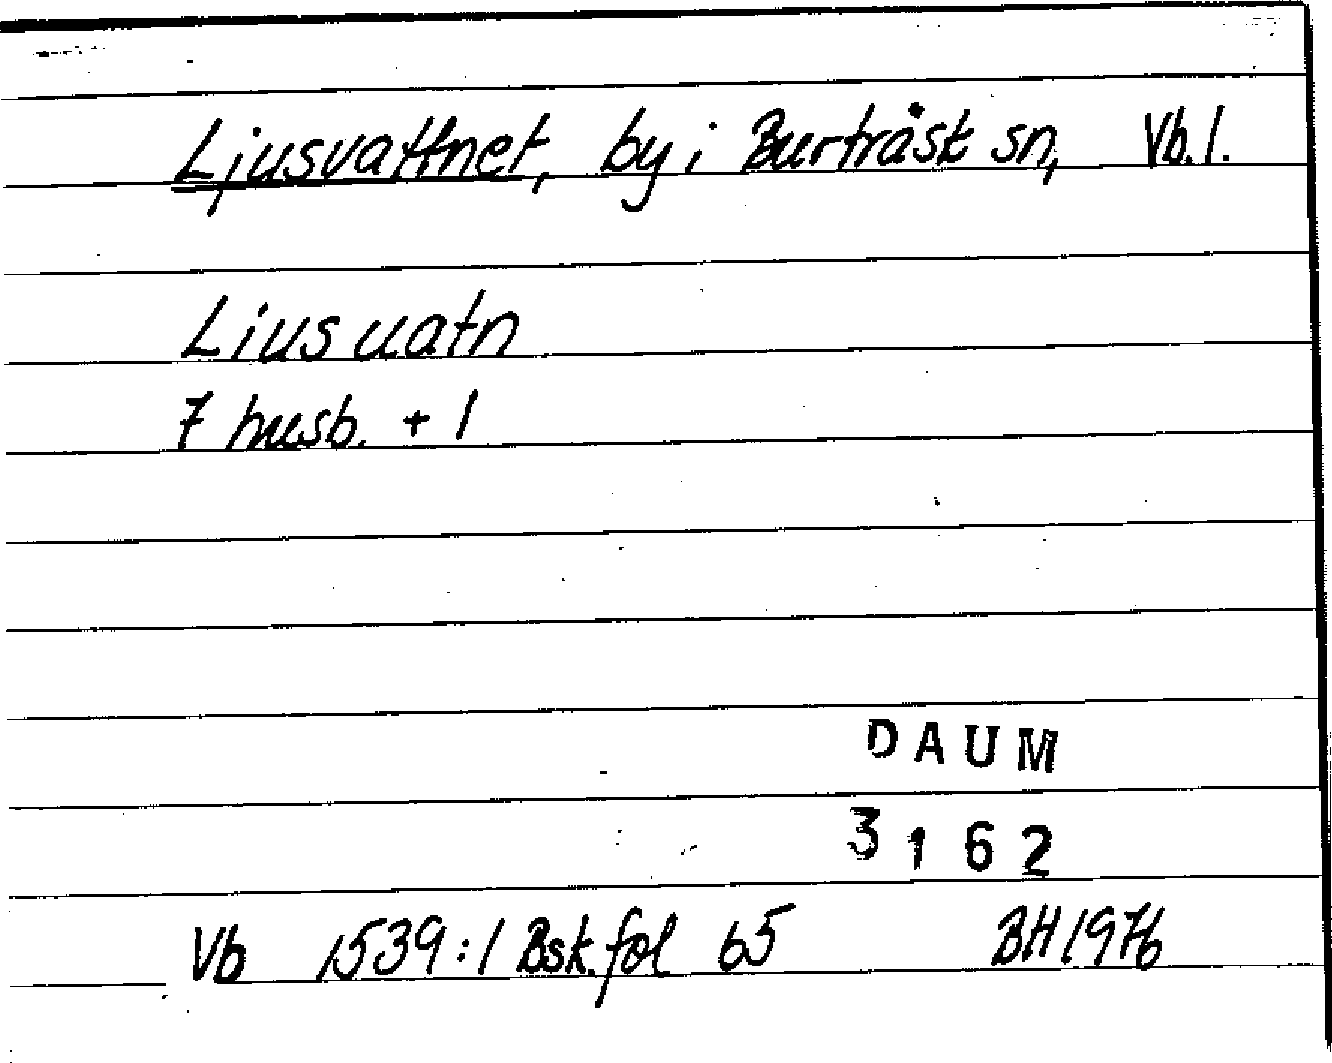 Ljusvattnet, by i Burträsk sn, Vb. l.
Lius uatn
7 husb. + 1
DAUM
3162
Vb 1539:1 Bsk. fol 65 BH 1976